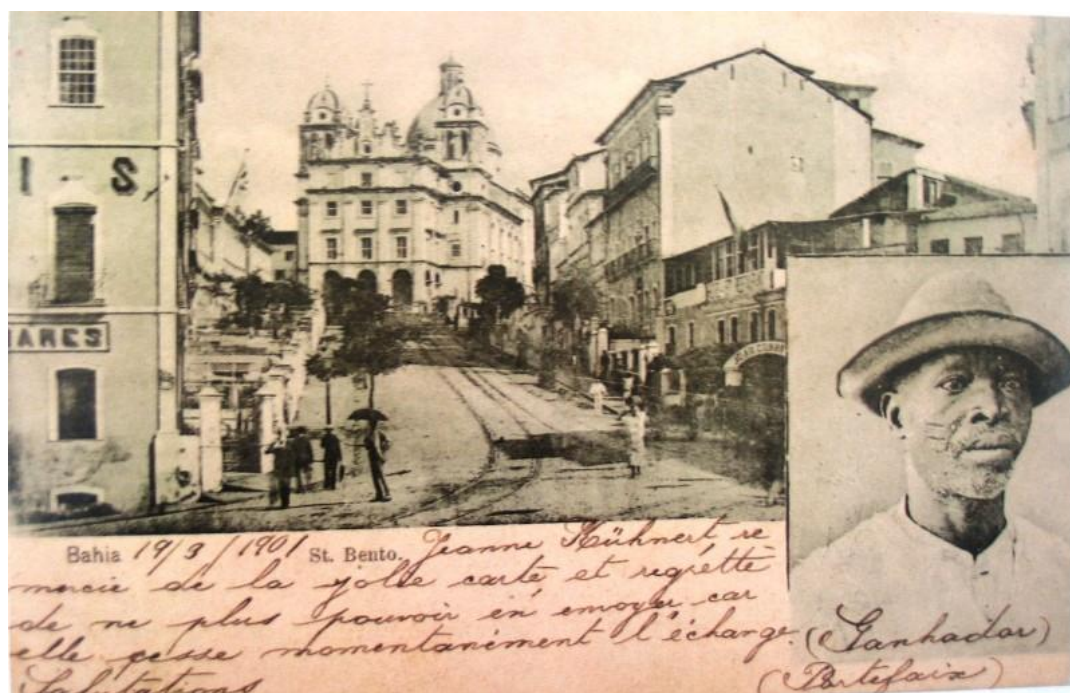 I S
ARES
Bahia 19/3/1901 St. Bento. Jeanne Kühnert, re
mercie de la jolie carte et regrette
de ne plus pouvoir en envoyer car
elle cesse momentanément l'échange.
Salutations
(Ganhador)
(Portefaix)